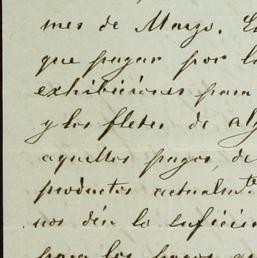 mes de Marzo. E
que pagar por l
exhibiciones para
y los fletes de al
aquellos pagos, de
productos actualmte
nos dén lo suficien
para los pagos q